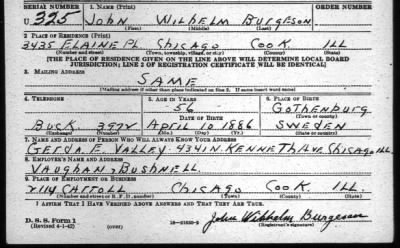 SERIAL NUMBER 1. NAME (Print) ORDER NUMBER
U 325 John Wilhelm Burgeson
(First) (Middle) (Last)
2. PLACE OF RESIDENCE (Print)
3435 ELAINE PL. CHICAGO COOK ILL
(Number and street) (Town, township, village, or city) (County) (State)
[THE PLACE OF RESIDENCE GIVEN ON THE LINE ABOVE WILL DETERMINE LOCAL BOARD
JURISDICTION; LINE 2 OF REGISTRATION CERTIFICATE WILL BE IDENTICAL]
3. MAILING ADDRESS
SAME
[Mailing address if other than place indicated on line 2. If same insert word same]
4. TELEPHONE 5. AGE IN YEARS 6. PLACE OF BIRTH
56 GOTHENBURG
DATE OF BIRTH (Town or county)
BUCK APRIL 10 1886 SWEDEN
(Exchange) (Number) (Mo.) (Day) (Yr.) (State or country)
7. NAME AND ADDRESS OF PERSON WHO WILL ALWAYS KNOW YOUR ADDRESS
GERDA. E. VALLEY. 4341 N. KENNETH AVE CHICAGO ILL
8. EMPLOYER'S NAME AND ADDRESS
VAUGHAN, BUSHNELL.
9. PLACE OF EMPLOYMENT OR BUSINESS
2114 CARROLL CHICAGO COOK ILL.
(Number and street or R. F. D. number) (Town) (County) (State)
I AFFIRM THAT I HAVE VERIFIED ABOVE ANSWERS AND THAT THEY ARE TRUE.
D. S. S. Form 1
(Revised 4-1-42) (over) John Wilhelm Burgeson
(Registrant's signature)